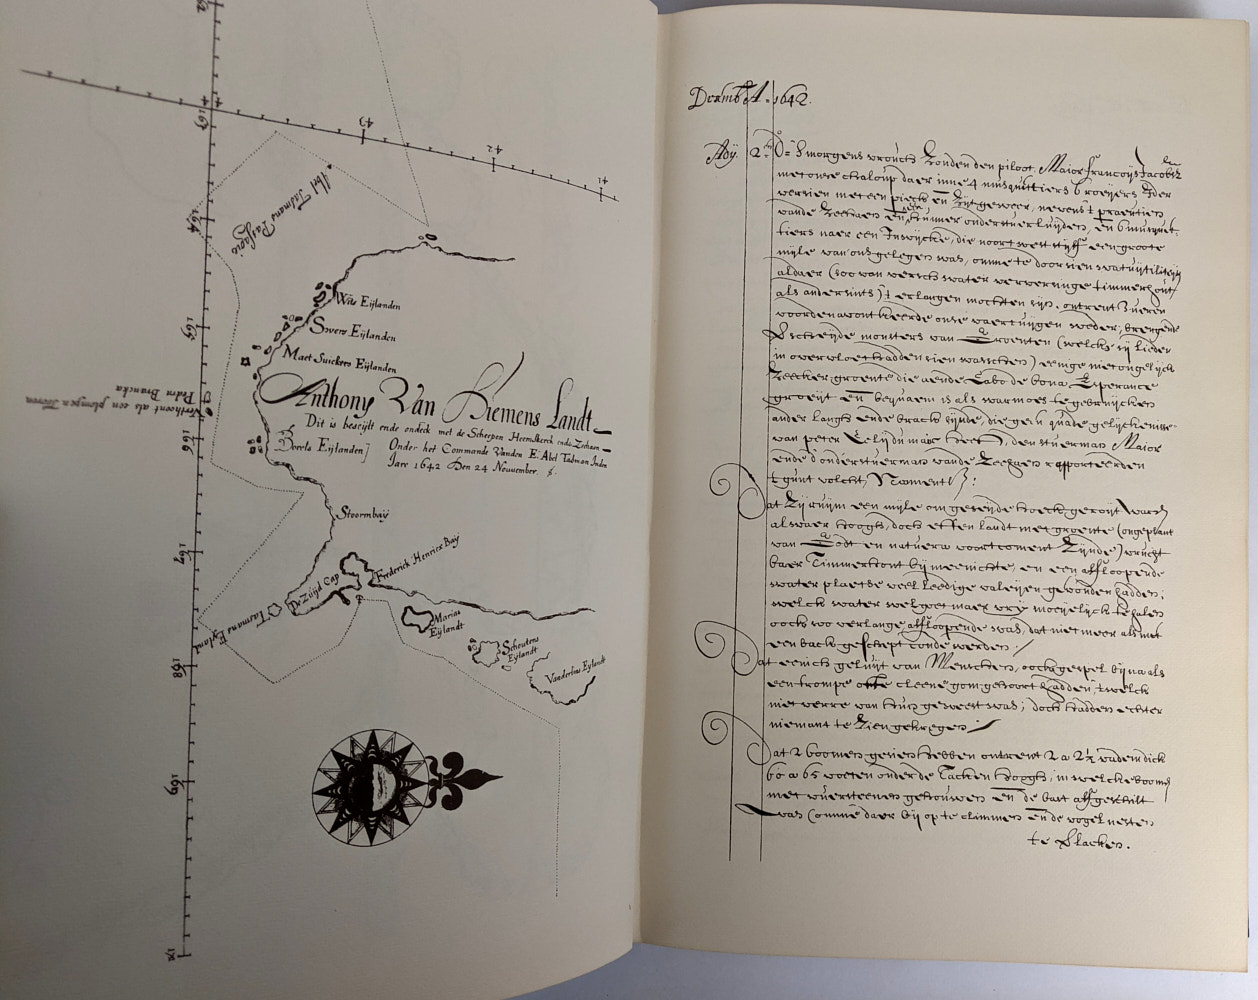 42
43
42
41
163
164
165
166
167
168
169
Abel Tasmans Passagie
Wits Eijlanden
Sweers Eijlanden
Maet Suickers Eijlanden
Anthony Van Diemens Landt
Dit is beseijlt ende ondeckt met de Scheepen Heemskerck ende Zeehaen
Onder het Commande Vanden E. Abel Tasman Inden
Jare 1642 Den 24 Nouember
Boreels Eijlanden
Verthoont als een
Pedra Brancka
Stoormbaij
Frederick Henricx Baij
De Zuijd Cap
Tasmans Eijland
Marias
Eijlandt
Schoutens
Eijlandt
Vanderlins Eijlandt
Decemb A.º 1642.
Adij 2.en Dº smorgens vrouch sonden den piloot Maior françoijs Jacobsz
met onse chaloup daer inne 4 musquettiers 6 roeijers ider
versien met een pieck en zijtgeweer, nevens t praeutien
vande Zeehaen en een hunner onderstuerluijden, en 6 musquet
tiers naer een Inwijcke, die noortwest wel een groote
mijle van ons gelegen was, omme te doorsien wat utiliteijt
aldaer (soo van versch water ververinge timmerhout
als andersints) t erlangen mochten sijn, ontrent 3 uren
voorden avont keerde onse vaertuijgen weder, brengende
verscheijde monsters van Groenten (welck sij lieder
in overvloet hadden sien wasschen) eenige niet ongelijck
seecker groente die aende Cabo de bona Esperance
groeijt en bequaem is als warmoes te gebruijcken
ander langh ende brack sijnde, die geen quade gelijckenisse
van peter zelij du maer heeft, den stuerman Maior
ende d'onderstuerman vande Zeehaen rapporteerden
t gunt volcht, Namentl:
Dat zij ruijm een mijle om geseijde hoeck geroeijt waren
alwaer hoogh, doch effen landt met groente (ongeplant
van Godt en natuere voortcoment zijnde) vrucht
baer Timmerhout bij meenichte, en een afloopende
water plaetse veel leedige valeijen gevonden hadden,
welck water wel goet maer vrij moeijelijck te halen
oock soo verlange afloopende was, dat niet meer als met
een back geschept conde werden /
Dat eenich geluijt van Menschen, oock gespel bijna als
een trompe ofte cleene gom gehoort hadden, t welck
niet verre van hun geweest was; doch hadden echter
niemant te zien gekregen /
Dat 2 boomen gesien hebben ontrent 2 a 2½ vadem dick
60 a 65 voeten onder de Tacken hoogh, in welcke boomen
met vuersteenen gehouwen en de bast afgeschilt
was (omme daer bij op te climmen en de vogel nesten
te